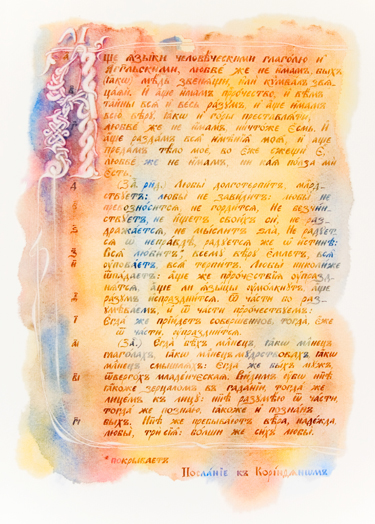 Аще языки человѣческими глаголю и
ангельскими, любве же не имамъ, быхъ
(яко) мѣдь звенящи, или кимвалъ звя-
цаяй. И аще имамъ пророчество, и вѣмъ
тайны вся и весь разумъ, и аще имамъ
всю вѣру, яко и горы преставляти,
любве же не имамъ, ничтоже есмь. И
аще раздамъ вся имѣнія моя, и аще
предамъ тѣло мое, во еже сжещи е,
любве же не имамъ, ни кая польза ми
есть.
д (За рнд.) Любы долготерпитъ, милосрд-
ствуетъ: любы не завидитъ: любы не
превозносится, не гордится. Не безчин-
ствуетъ, не ищетъ своихъ си, не раз-
дражается, не мыслитъ зла. Не радует-
ся ѡ неправдѣ, радуется же ѡ истинѣ:
Вся любитъ*, всему вѣру емлетъ, вся
уповаетъ, вся терпитъ. Любы николиже
ѿпадаетъ: аще же пророчествія оупраз-
нятся, аще ли языцы оумолкнутъ, аще
разумъ испразднится. Ѿ части бо раз-
умѣваемъ, и ѿ части пророчествуемъ:
і Егда же пріидетъ совершенное, тогда, еже
ѿ части, оупразднится.
аі (За.) Егда бѣхъ младенецъ, яко младенецъ
глаголахъ, яко младенецъ мудрствовахъ, яко
младенецъ смышляхъ: Егда же быхъ мужъ,
ві ѿвергохъ младенческая. Видимъ оубо нынѣ
якоже зерцаломъ въ гаданіи, тогда же
лицемъ къ лицу: нынѣ разумѣю ѿ части,
тогда же познаю, якоже и познанъ
гі быхъ. Нынѣ же пребываютъ вѣра, надежда,
любы, три сія: больши же сихъ любы.
* покрываетъ
Посланіе къ Коринѳяномъ